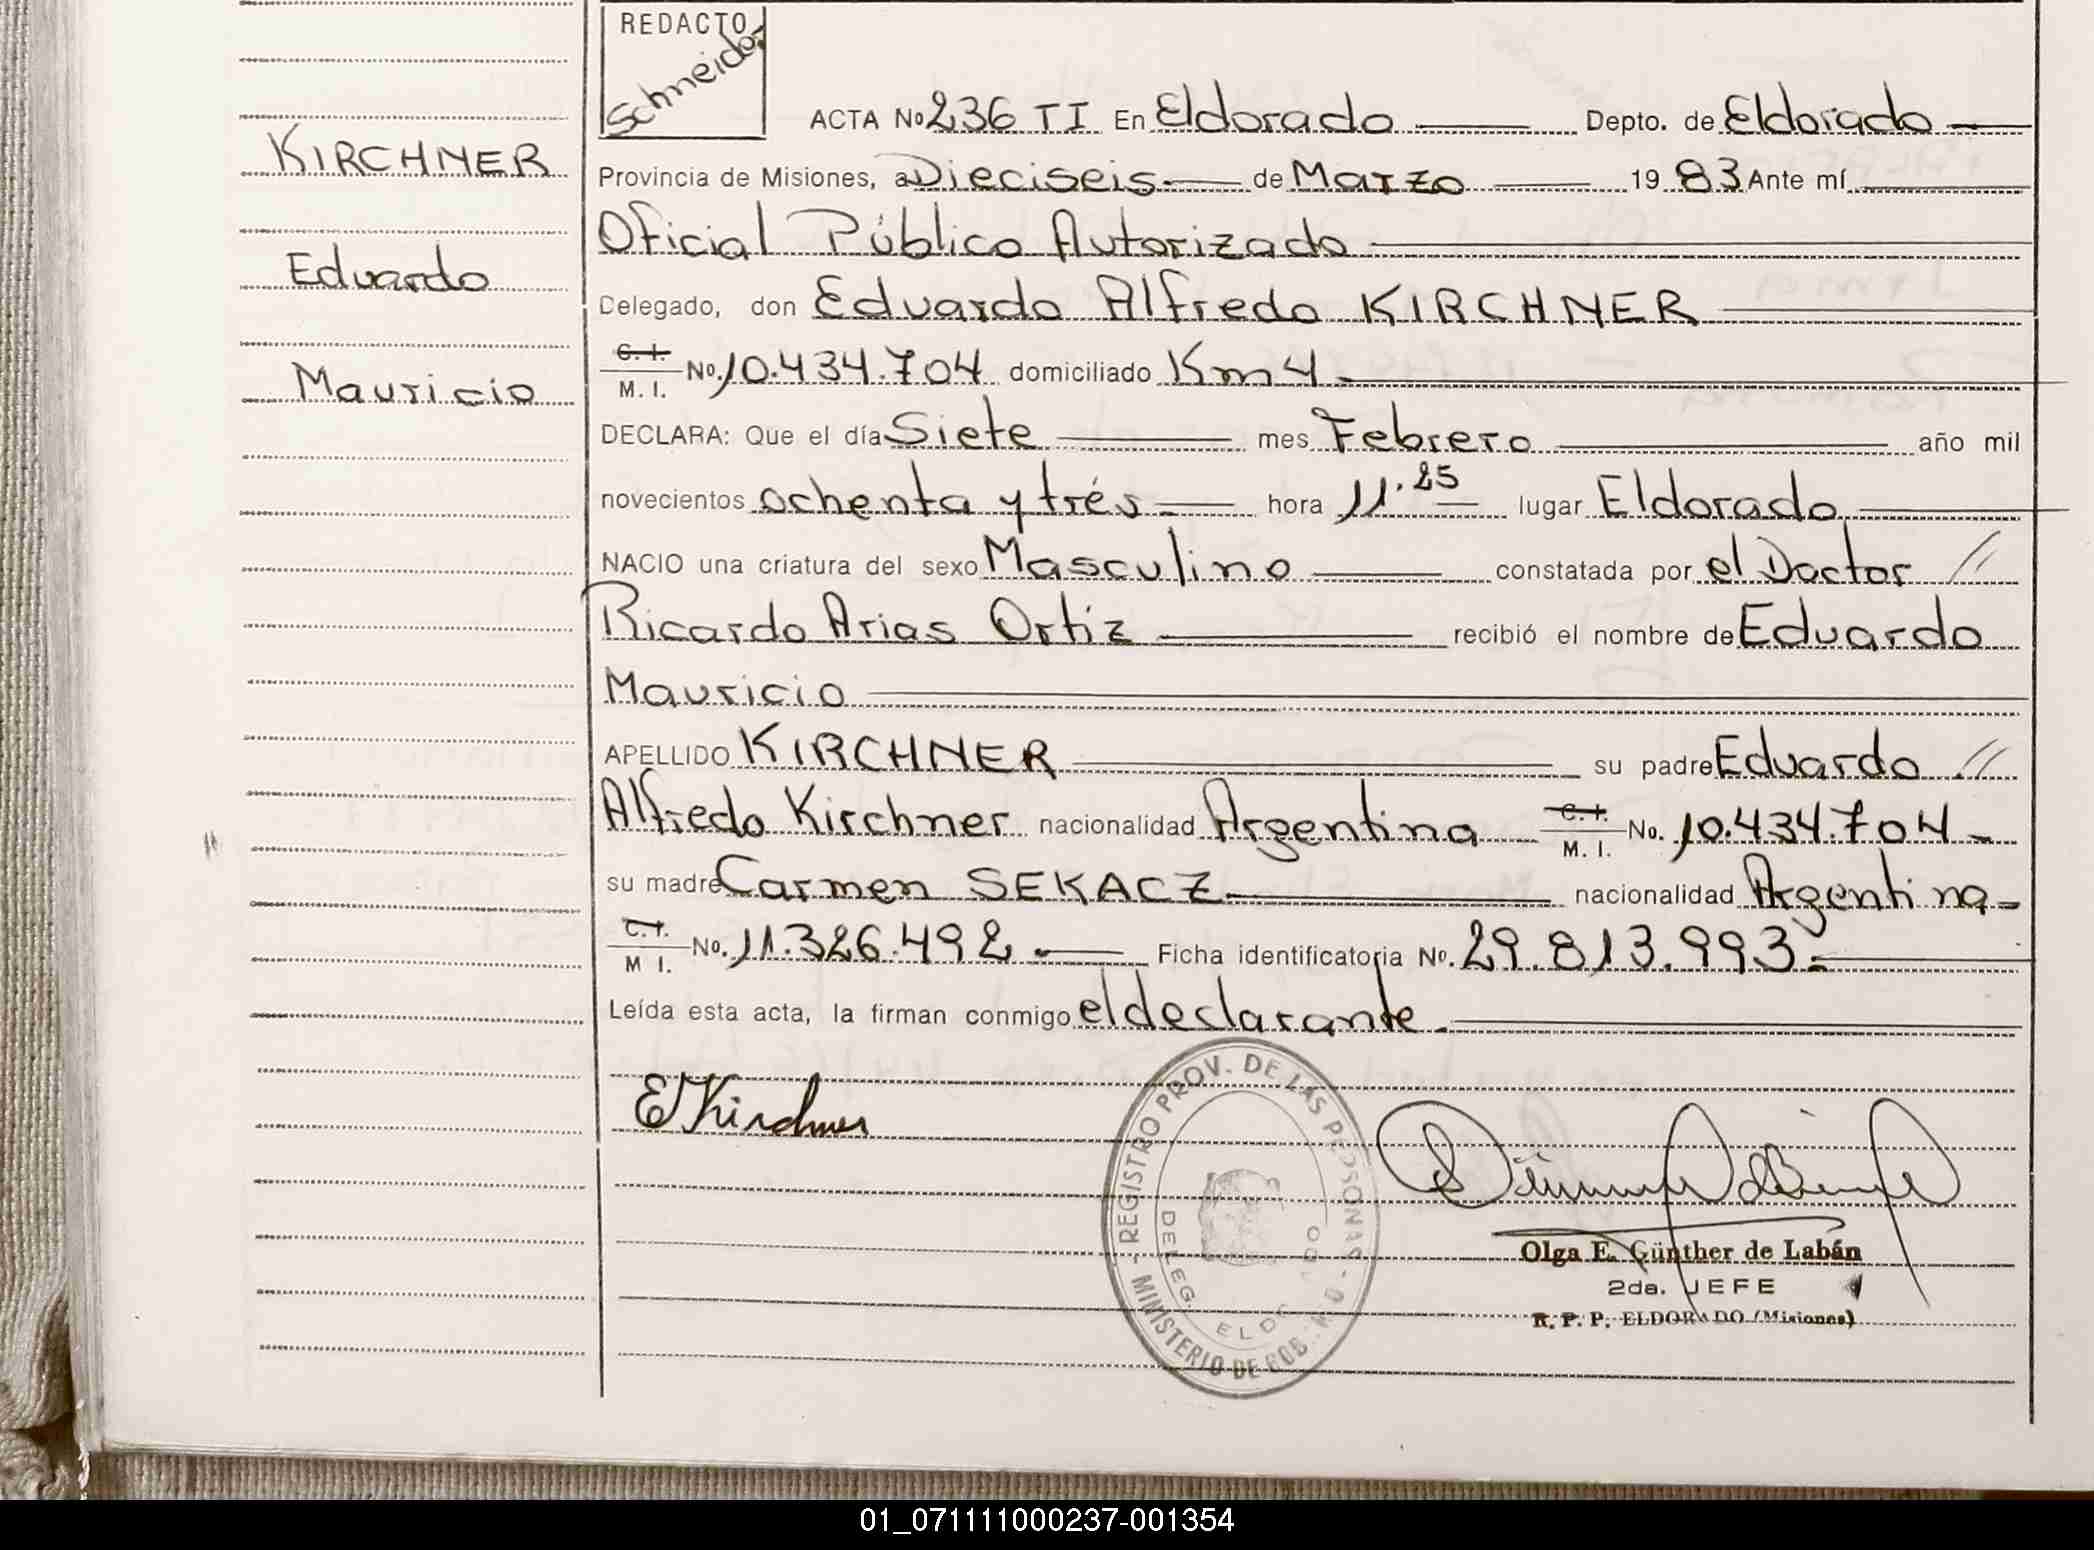 REDACTO
Schneider
KIRCHNER
Eduardo
Mauricio
ACTA Nº 236 TI En Eldorado Depto. de Eldorado
Provincia de Misiones, a Dieciseis de Marzo 19 83 Ante mí
Oficial Público Autorizado
Delegado, don Eduardo Alfredo KIRCHNER
C. I. M. I. No. 10.434.704 domiciliado Km 4.
DECLARA: Que el día Siete mes Febrero año mil
novecientos ochenta y trés hora 11.25 lugar Eldorado
NACIO una criatura del sexo Masculino constatada por el Doctor //
Ricardo Arias Ortiz recibió el nombre de Eduardo
Mauricio
APELLIDO KIRCHNER su padre Eduardo //
Alfredo Kirchner nacionalidad Argentina C. I. M. I. No. 10.434.704-
su madre Carmen SEKACZ nacionalidad Argentina-
C. I. M I. No. 11.326.492.- Ficha identificatoria No. 29.813.993.-
Leída esta acta, la firman conmigo el declarante.
EKirchner
- REGISTRO PROV. DE LAS PERSONAS -
MINISTERIO DE GOB.
DELEG.
Olga E. Günther de Labán
2da. JEFE
R. P. P. ELDORADO (Misiones)
01_071111000237-001354